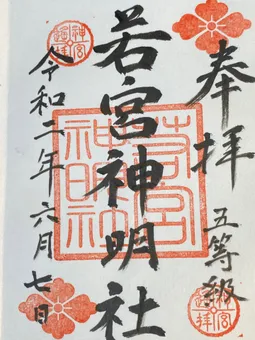 奉拝
五等級
若宮神明社
令和二年六月七日
若宮
神明社
神宮
遥拝
神宮
遥拝